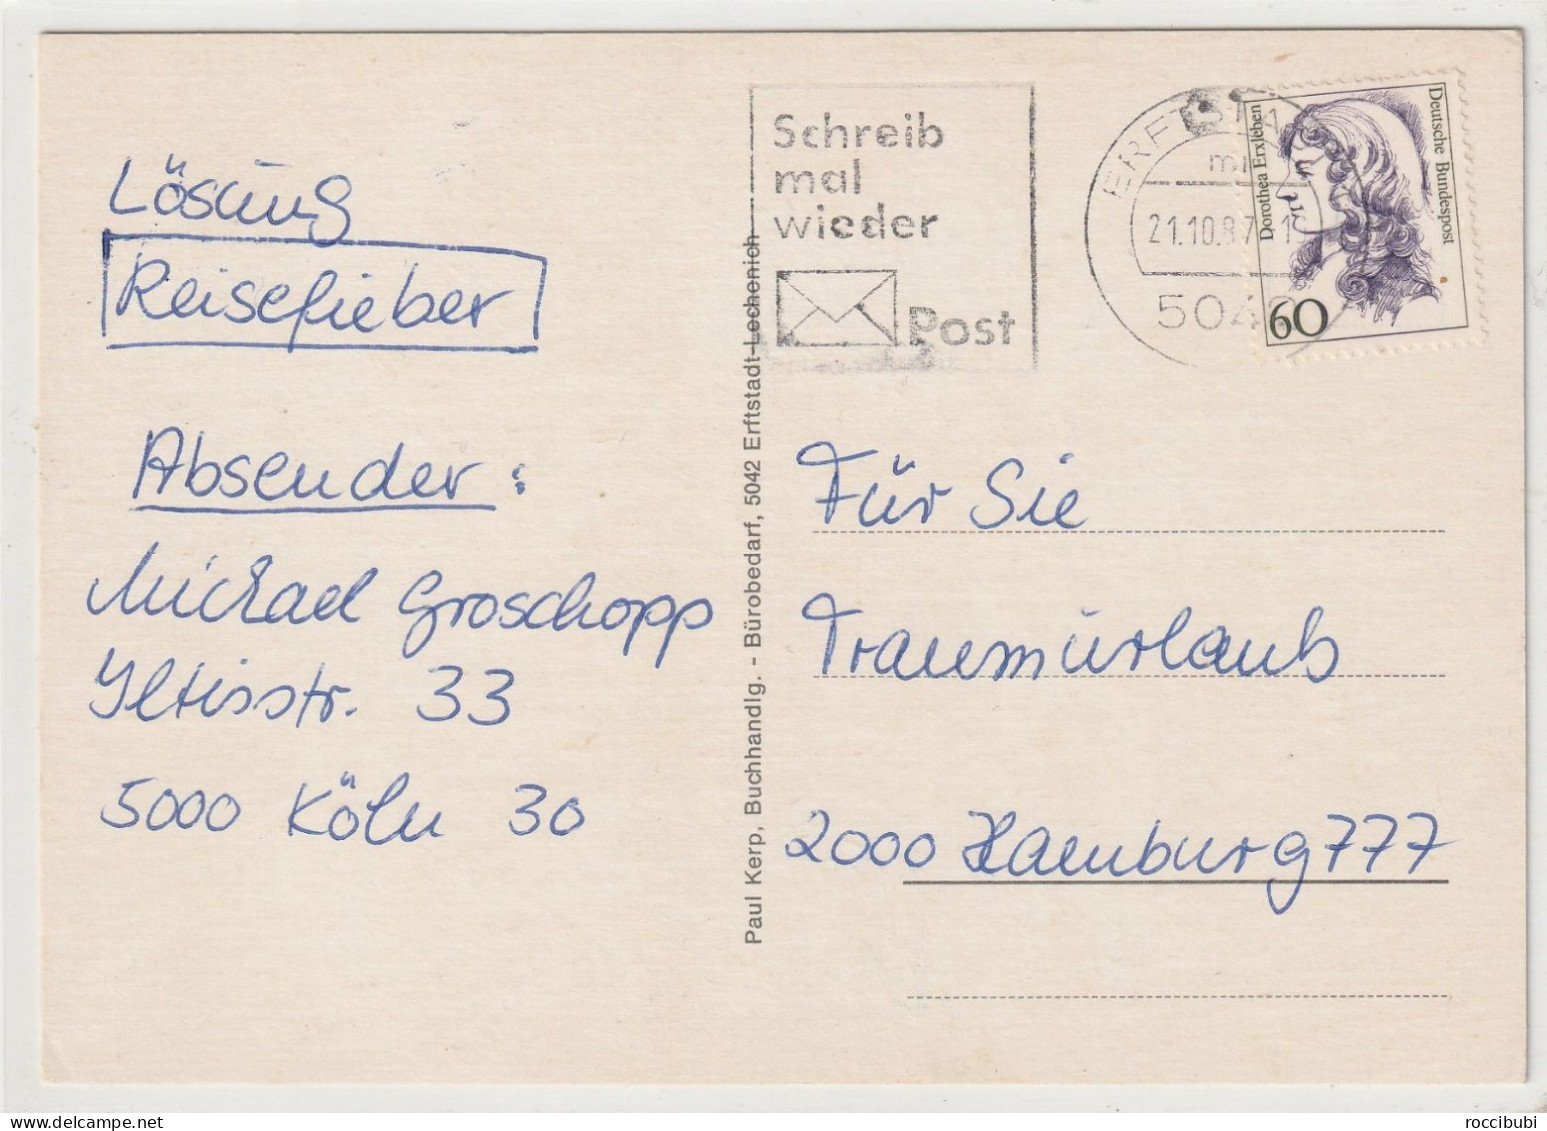 Lösung
Reisefieber
Absender:
Michael Groschopp
Iltisstr. 33
5000 Köln 30
Paul Kerp, Buchhandlg. - Bürobedarf, 5042 Erftstadt-Lechenich
Schreib
mal
wieder
Post
ERFTSTA
21.10.87
504
Dorothea Erxleben
Deutsche Bundespost
60
Für Sie
Traumurlaub
2000 Hamburg 777
roccibubi